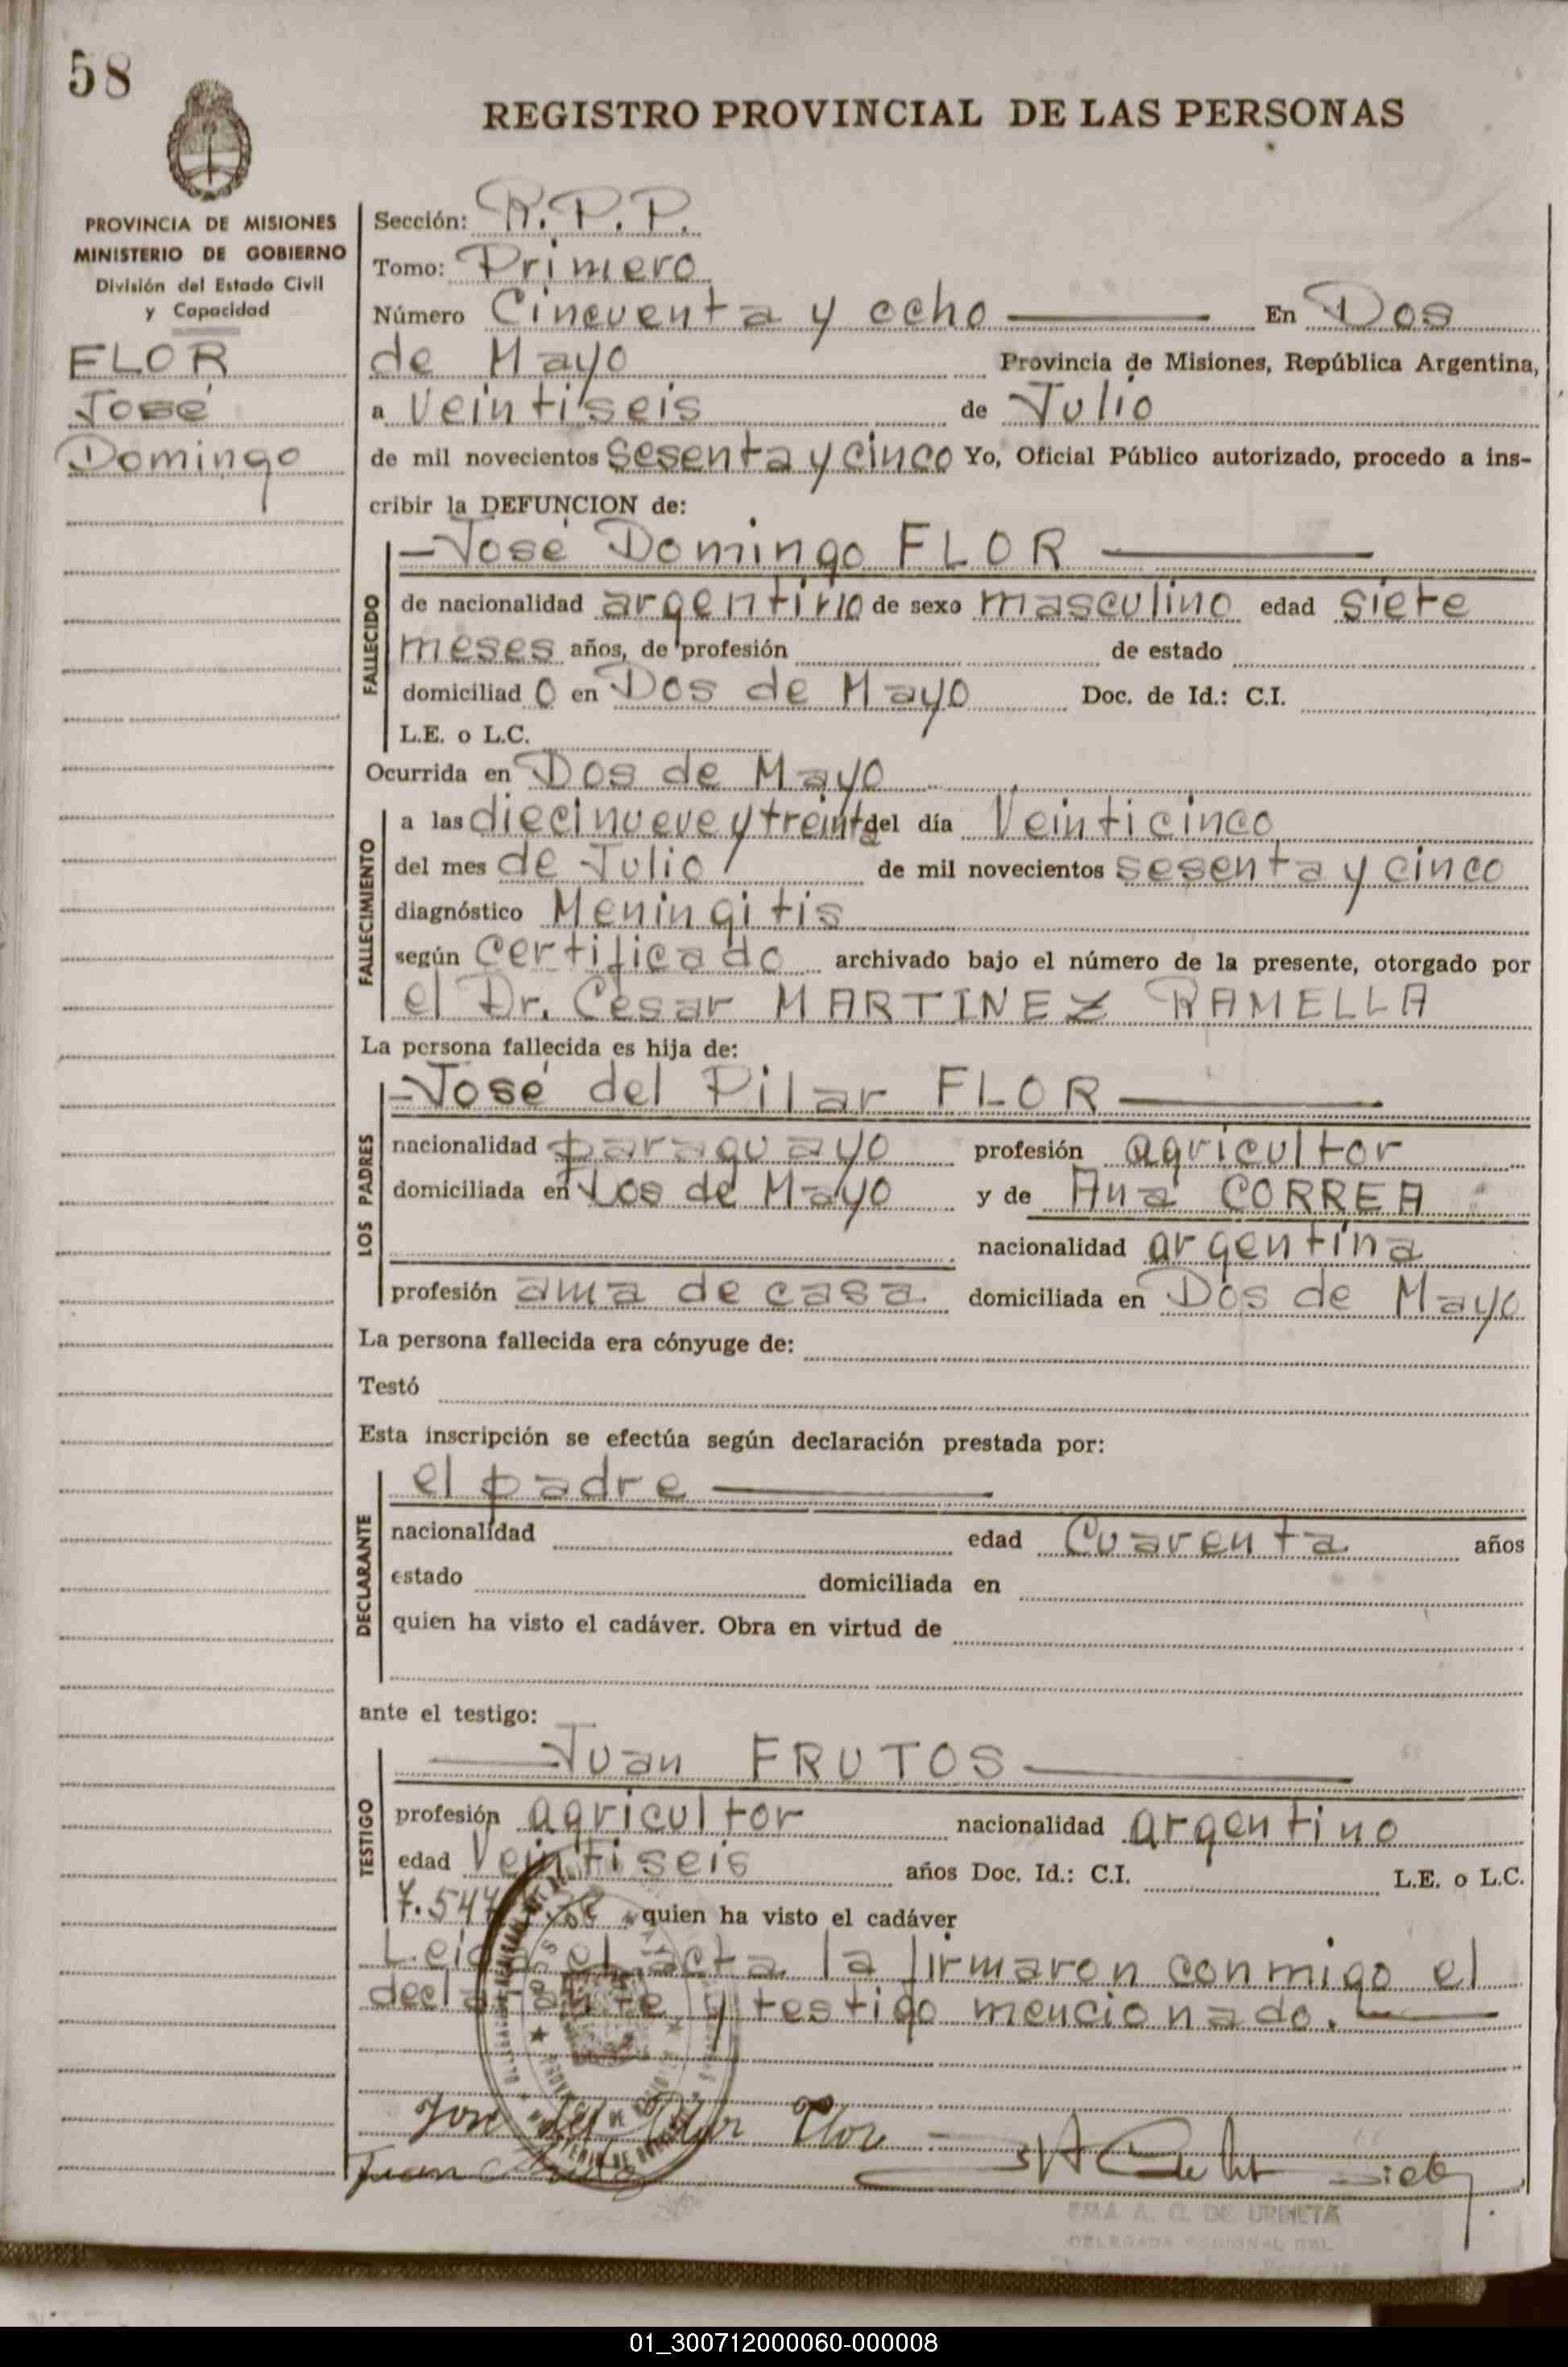 58
REGISTRO PROVINCIAL DE LAS PERSONAS
PROVINCIA DE MISIONES
MINISTERIO DE GOBIERNO
División del Estado Civil
y Capacidad
FLOR
José
Domingo
Sección: R.P.P.
Tomo: Primero
Número Cincuenta y ocho En Dos
de Mayo Provincia de Misiones, República Argentina,
a Veintiseis de Julio
de mil novecientos Sesenta y cinco Yo, Oficial Público autorizado, procedo a ins-
cribir la DEFUNCION de:
FALLECIDO
José Domingo FLOR
de nacionalidad argentino de sexo masculino edad siete
meses años, de profesión de estado
domiciliad o en Dos de Mayo Doc. de Id.: C.I.
L.E. o L.C.
Ocurrida en Dos de Mayo
FALLECIMIENTO
a las diecinueve y treinta del día Veinticinco
del mes de Julio de mil novecientos sesenta y cinco
diagnóstico Meningitis
según certificado archivado bajo el número de la presente, otorgado por
el Dr. César MARTINEZ RAMELLA
La persona fallecida es hija de:
LOS PADRES
José del Pilar FLOR
nacionalidad paraguayo profesión agricultor
domiciliada en Dos de Mayo y de Ana CORREA
nacionalidad argentina
profesión ama de casa domiciliada en Dos de Mayo
La persona fallecida era cónyuge de:
Testó
Esta inscripción se efectúa según declaración prestada por:
DECLARANTE
el padre
nacionalidad edad Cuarenta años
estado domiciliada en
quien ha visto el cadáver. Obra en virtud de
ante el testigo:
TESTIGO
Juan FRUTOS
profesión agricultor nacionalidad argentino
edad Veintiseis años Doc. Id.: C.I. L.E. o L.C.
7.547 quien ha visto el cadáver
Leida el acta la firmaron conmigo el
declarante y testigo mencionado.
José del Pilar Flor
Juan
EMA A. G. DE URBIETA
DELEGADA REGIONAL DEL
01_300712000060-000008